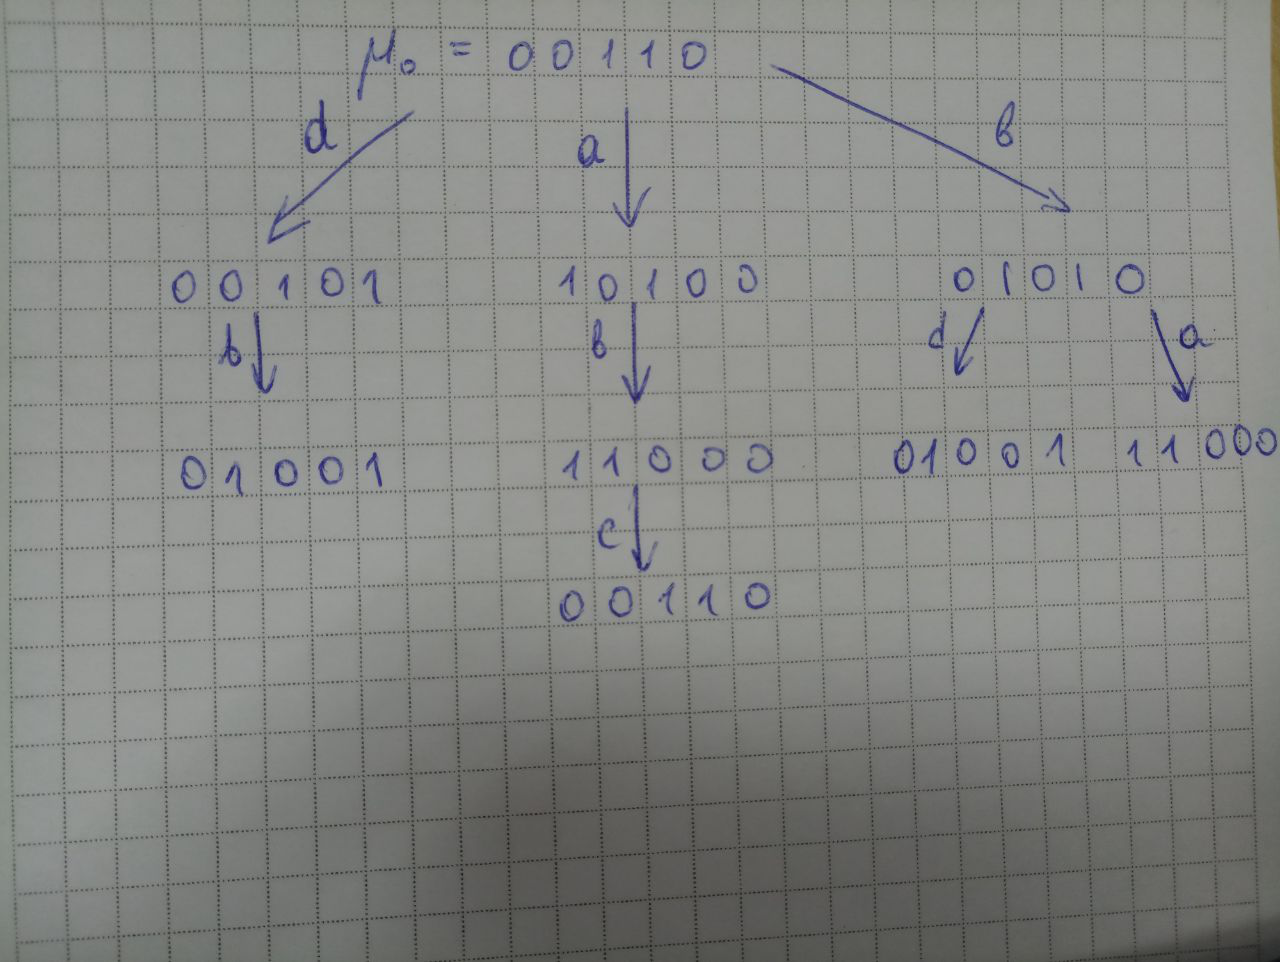 μ₀ = 00110
d a b
00101 10100 01010
b b d a
01001 11000 01001 11000
c
00110